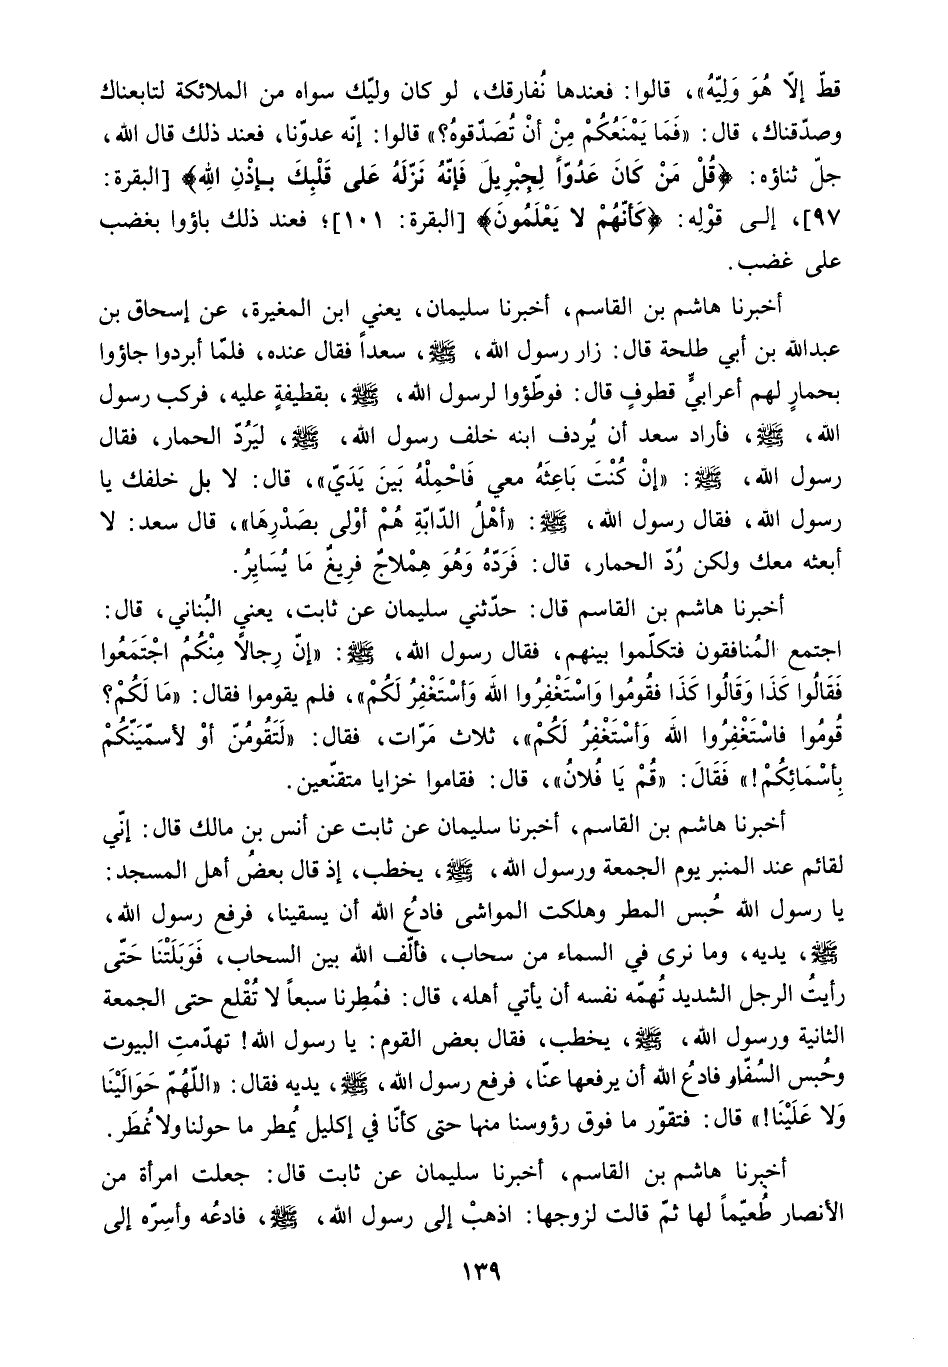 قطّ إلّا هُوَ وَلِيّهُ»، قالوا: فعندها نُفارقك، لو كان وليّك سواه من الملائكة لتابعناك
وصدّقناك، قال: «فَمَا يَمْنَعُكُمْ مِنْ أنْ تُصَدّقوهُ؟» قالوا: إنّه عدوّنا، فعند ذلك قال الله،
جلّ ثناؤه: ﴿قُلْ مَنْ كَانَ عَدُوّاً لِجِبْرِيلَ فَإنّهُ نَزّلَهُ عَلى قَلْبِكَ بـإذْنِ اللهِ﴾ [البقرة:
٩٧]، إلـى قوْلِه: ﴿كَأنّهُمْ لا يَعْلَمُونَ﴾ [البقرة: ١٠١]؛ فعند ذلك باؤوا بغضب
على غضب.
أخبرنا هاشم بن القاسم، أخبرنا سليمان، يعني ابن المغيرة، عن إسحاق بن
عبدالله بن أبي طلحة قال: زار رسول الله، ﷺ، سعداً فقال عنده، فلمّا أبردوا جاؤوا
بحمارٍ لهم أعرابيٍّ قطوفٍ قال: فوطّؤوا لرسول الله، ﷺ، بقطيفةٍ عليه، فركب رسول
الله، ﷺ، فأراد سعد أن يُردف ابنه خلف رسول الله، ﷺ، ليَرُدّ الحمار، فقال
رسول الله، ﷺ: «إنْ كُنْتَ بَاعِثَهُ معي فَاحْمِلْهُ بَينَ يَدَيّ»، قال: لا بل خلفك يا
رسول الله، فقال رسول الله، ﷺ: «أهْلُ الدّابّةِ هُمْ أوْلى بصَدْرِهَا»، قال سعد: لا
أبعثه معك ولكن رُدّ الحمار، قال: فَرَدّهُ وَهُوَ هِمْلاجٌ فريغٌ مَا يُسَايِرُ.
أخبرنا هاشم بن القاسم قال: حدّثني سليمان عن ثابت، يعني البُناني، قال:
اجتمع المُنافقون فتكلّموا بينهم، فقال رسول الله، ﷺ: «إنّ رِجالاً مِنْكُمُ اجْتَمَعُوا
فَقَالُوا كَذَا وَقَالُوا كَذَا فقُومُوا وَاسْتَغْفِرُوا اللهَ وَأسْتَغْفِرُ لَكُمْ»، فلم يقوموا فقال: «مَا لَكُمْ؟
قُومُوا فاسْتَغْفِرُوا اللهَ وَأسْتَغْفِرُ لَكُمْ»، ثلاث مَرّات، فقال: «لَتَقُومُنّ أوْ لأسمّيَنّكُمْ
بِأسْمَائِكُمْ!» فَقَالَ: «قُمْ يَا فُلانُ»، قال: فقاموا خزايا متقنّعين.
أخبرنا هاشم بن القاسم، أخبرنا سليمان عن ثابت عن أنس بن مالك قال: إنّي
لقائم عند المنبر يوم الجمعة ورسول الله، ﷺ، يخطب، إذ قال بعضُ أهل المسجد:
يا رسول الله حُبس المطر وهلكت المواشي فادعُ الله أن يسقينا، فرفع رسول الله،
ﷺ، يديه، وما نرى في السماء من سحاب، فألّف الله بين السحاب، فَوَبَلَتْنَا حَتّى
رأيتُ الرجل الشديد تُهمّه نفسه أن يأتي أهله، قال: فمُطِرنا سبعاً لا تُقْلع حتى الجمعة
الثانية ورسول الله، ﷺ، يخطب، فقال بعض القوم: يا رسول الله! تهدّمتِ البيوت
وحُبس السُفّار فادعُ الله أن يرفعها عنّا، فرفع رسول الله، ﷺ، يديه فقال: «اللّهُمّ حَوَالَيْنَا
وَلا عَلَيْنَا!» قال: فتقوّر ما فوق رؤوسنا منها حتى كأنّا في إكليل يُمطر ما حولنا ولا نُمطَر.
أخبرنا هاشم بن القاسم، أخبرنا سليمان عن ثابت قال: جعلت امرأة من
الأنصار طُعيّماً لها ثمّ قالت لزوجها: اذهبْ إلى رسول الله، ﷺ، فادعُه وأسِرّه إلى
١٣٩